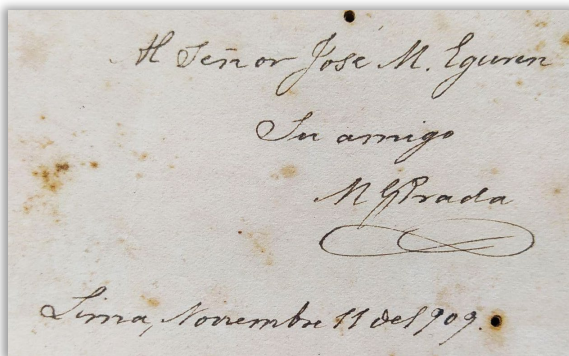 Al Señor José M. Eguren
Su amigo
M G Prada
Lima, Noviembre 11 del 909.